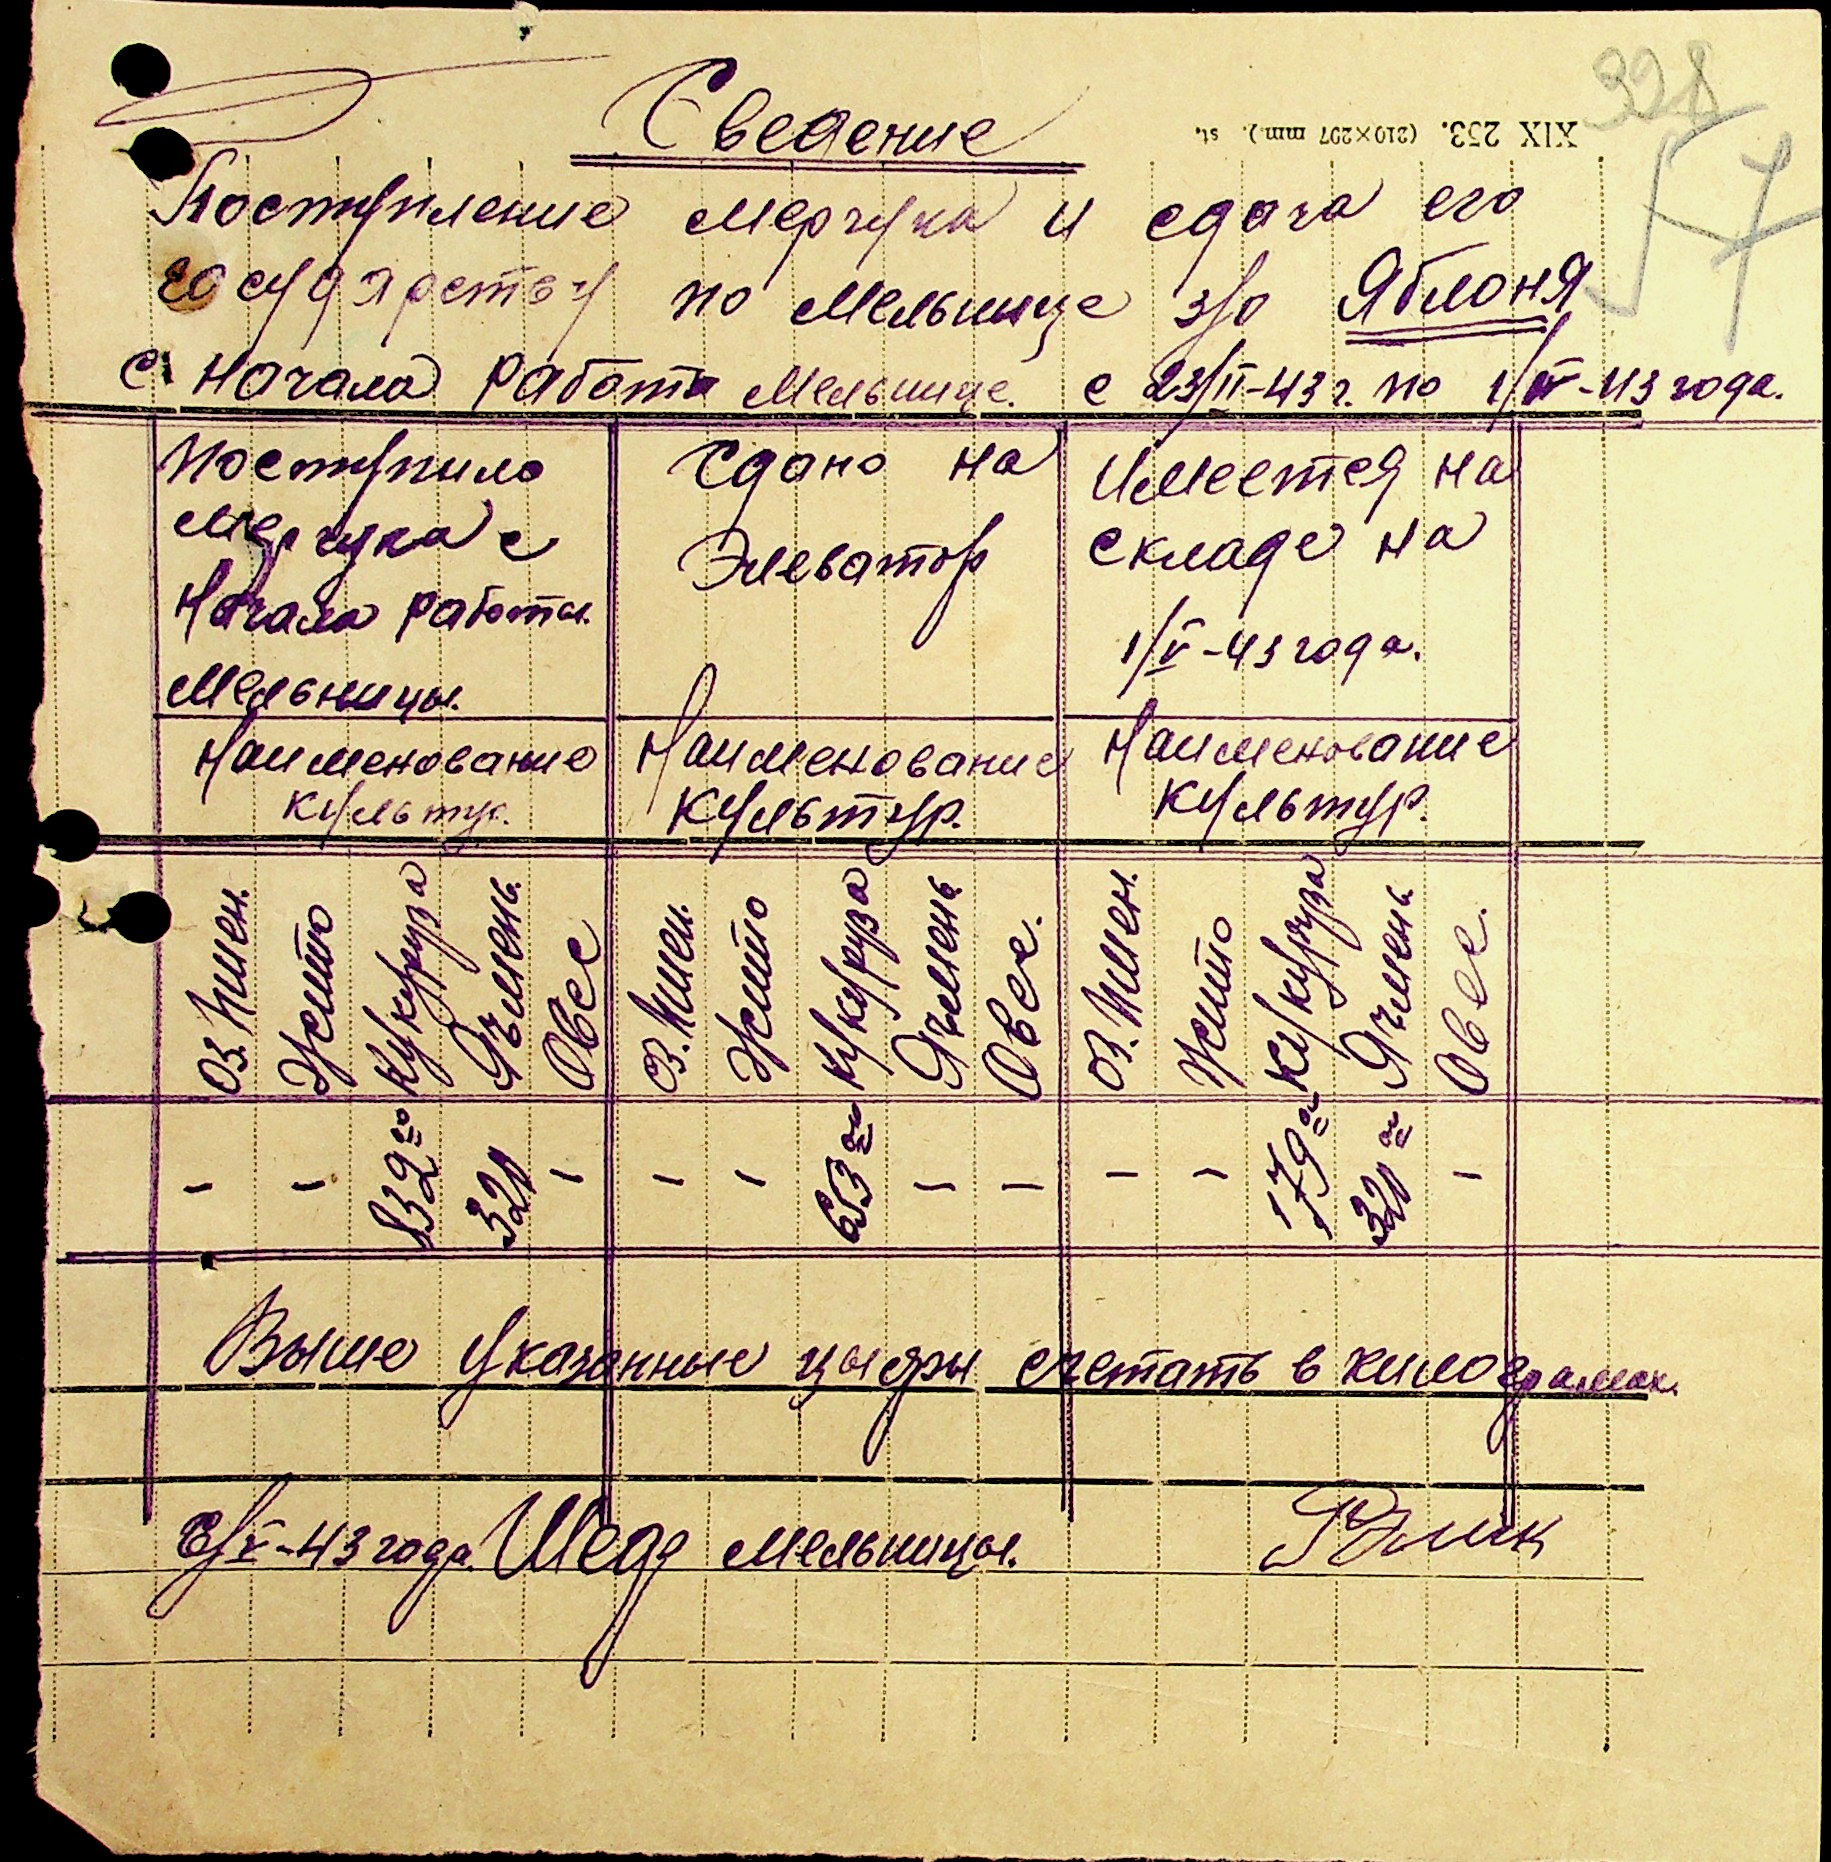 328
57
XIX 253. (210×297 mm.). st.
Сведение
Поступление мерчука и сдача его
государству по мельнице з/о Яблоня
с начала работы мельнице. с 23/II-43 г. по 1/V-43 года.
Поступило мерчука с начала работы мельницы.
Сдано на Элеватор
Имеется на складе на 1/V-43 года.
Наименование культур.
Наименование культур.
Наименование культур.
Оз. Пшен. Жито Кукуруза Ячмень Овес
Оз. Пшен. Жито Кукуруза Ячмень Овес.
Оз. Пшен. Жито Кукуруза Ячмень Овес.
- - 832 320 - - - 653 - - - - 179 320 -
Выше указанные цыфры счетать в килограмах.
/V-43 года. мельницы.